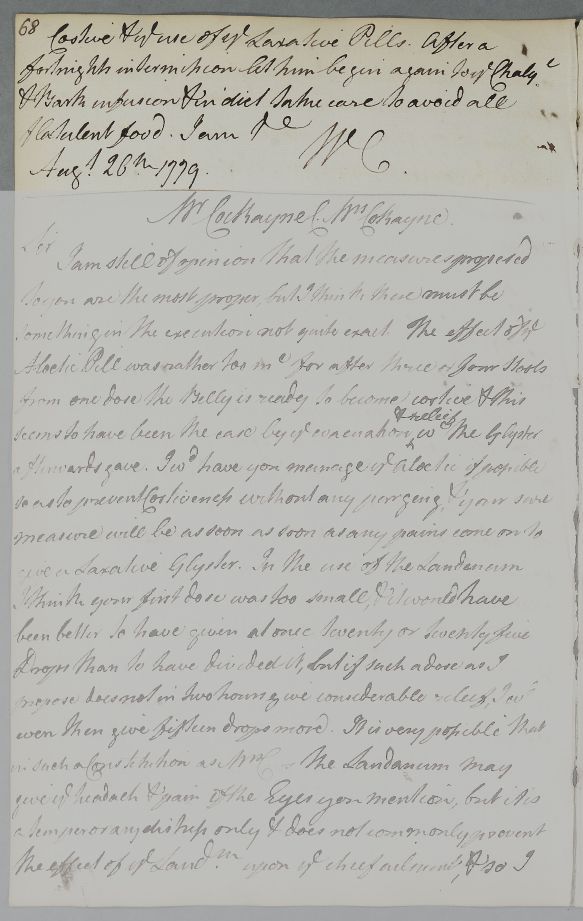 68
Costive & ye use of ye Laxative Pills. After a
fortnights intermission let him begin again wt ye Chalyc
& Bark infusion & in diet take care to avoid all
flatulent food. I am &c
WC.
Augt. 26th 1779.
Mr Cockayne C. Mrs Cokayne.
Sir
I am still of opinion that the measures proposed
to you are the most proper, but I think there must be
something in the execution not quite exact. The effect of ye
Aloetic Pill was rather too mc for after three or four Stools
from one dose the Belly is ready to become costive & this
seems to have been the case by ye evacuation & relief wc the Glyster
afterwards gave. I wd have you manage ye Aloetic if possible
so as to prevent Costiveness without any purgeing, & your sure
measure will be as soon as soon as any pains come on to
give a Laxative Glyster. In the use of the Laudanum
I think your first dose was too small, & it would have
been better to have given at once twenty or twenty five
Drops than to have divided it, but if such a dose as I
propose does not in two hours give considerable relief, I wd
even then give fifteen drops more. It is very possible that
in such a Constitution as Mrs C the Laudanum may
give ye headach & pain of the Eyes you mention, but it is
a temporary only & does not commonly prevent
the effect of ye Laudm upon ye chief ailments, & so I